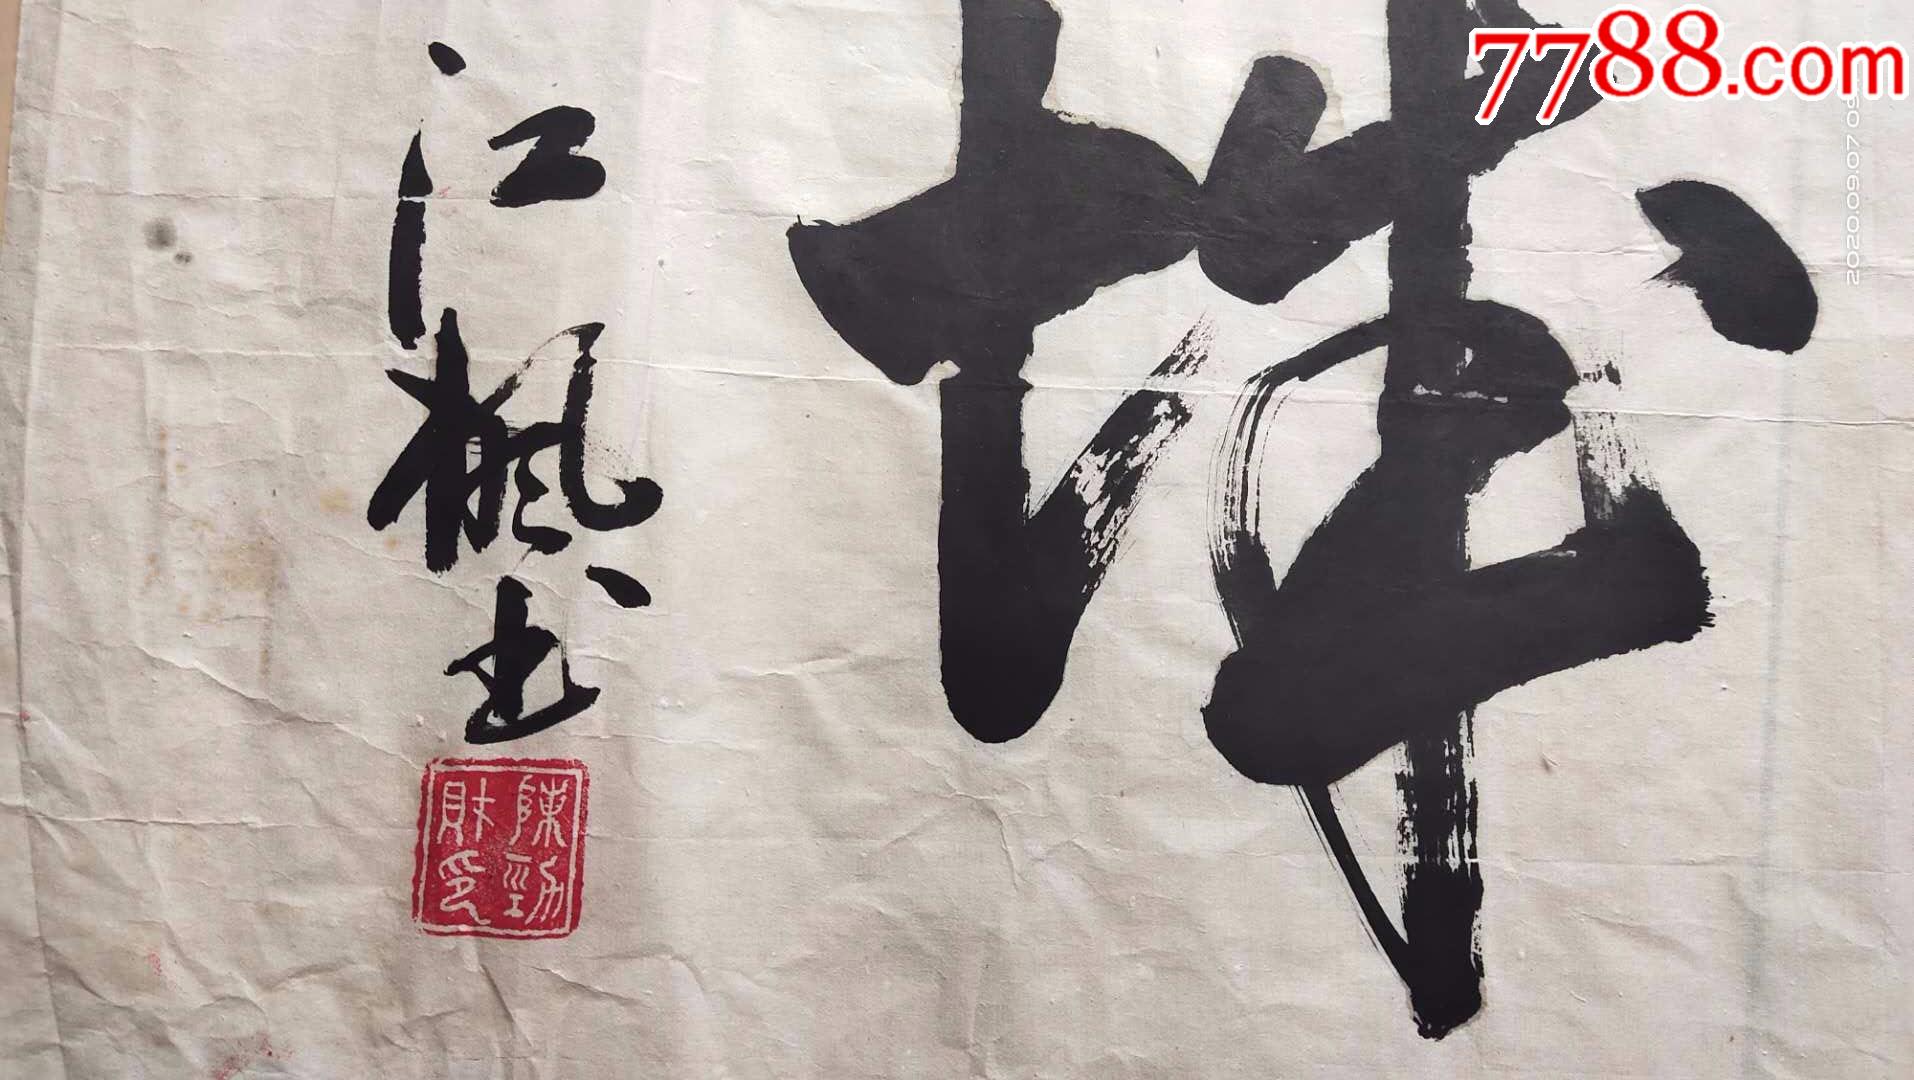 7788.com
2020.09.07 09
江枫书
陳勁
財印